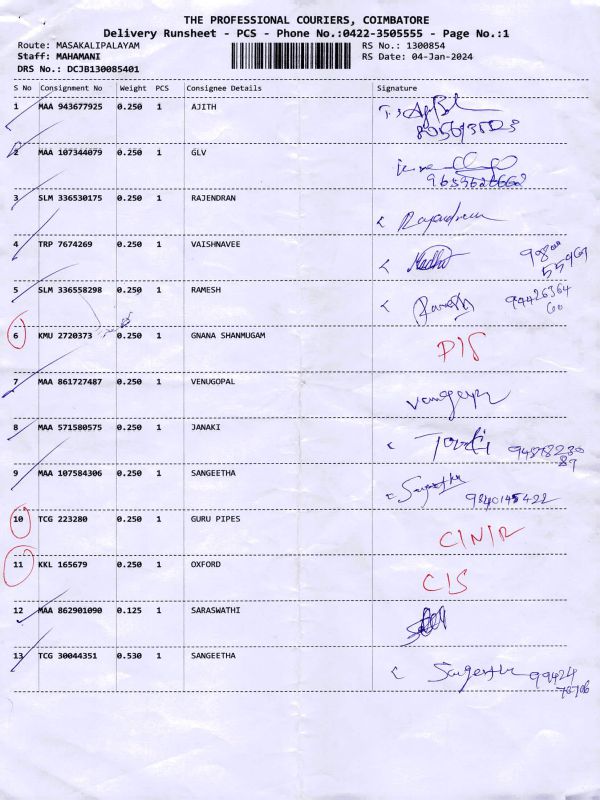 THE PROFESSIONAL COURIERS, COIMBATORE
Delivery Runsheet - PCS - Phone No.:0422-3505555 - Page No.:1
Route: MASAKALIPALAYAM RS No.: 1300854
Staff: MAHAMANI RS Date: 04-Jan-2024
DRS No.: DCJB130085401
S No Consignment No Weight PCS Consignee Details Signature
1 MAA 943677925 0.250 1 AJITH
2 MAA 107344079 0.250 1 GLV
9659626662
3 SLM 336530175 0.250 1 RAJENDRAN Rajendran
4 TRP 7674269 0.250 1 VAISHNAVEE
5 SLM 336558298 0.250 1 RAMESH Ramesh 99426364
60
6 KMU 2720373 0.250 1 GNANA SHANMUGAM D/S
7 MAA 861727487 0.250 1 VENUGOPAL
8 MAA 571580575 0.250 1 JANAKI 94878230
89
9 MAA 107584306 0.250 1 SANGEETHA Sangeetha 9840145422
10 TCG 223280 0.250 1 GURU PIPES C/N/R
11 KKL 165679 0.250 1 OXFORD C/S
12 MAA 862901090 0.125 1 SARASWATHI
13 TCG 30044351 0.530 1 SANGEETHA Sangeetha 99424
76706